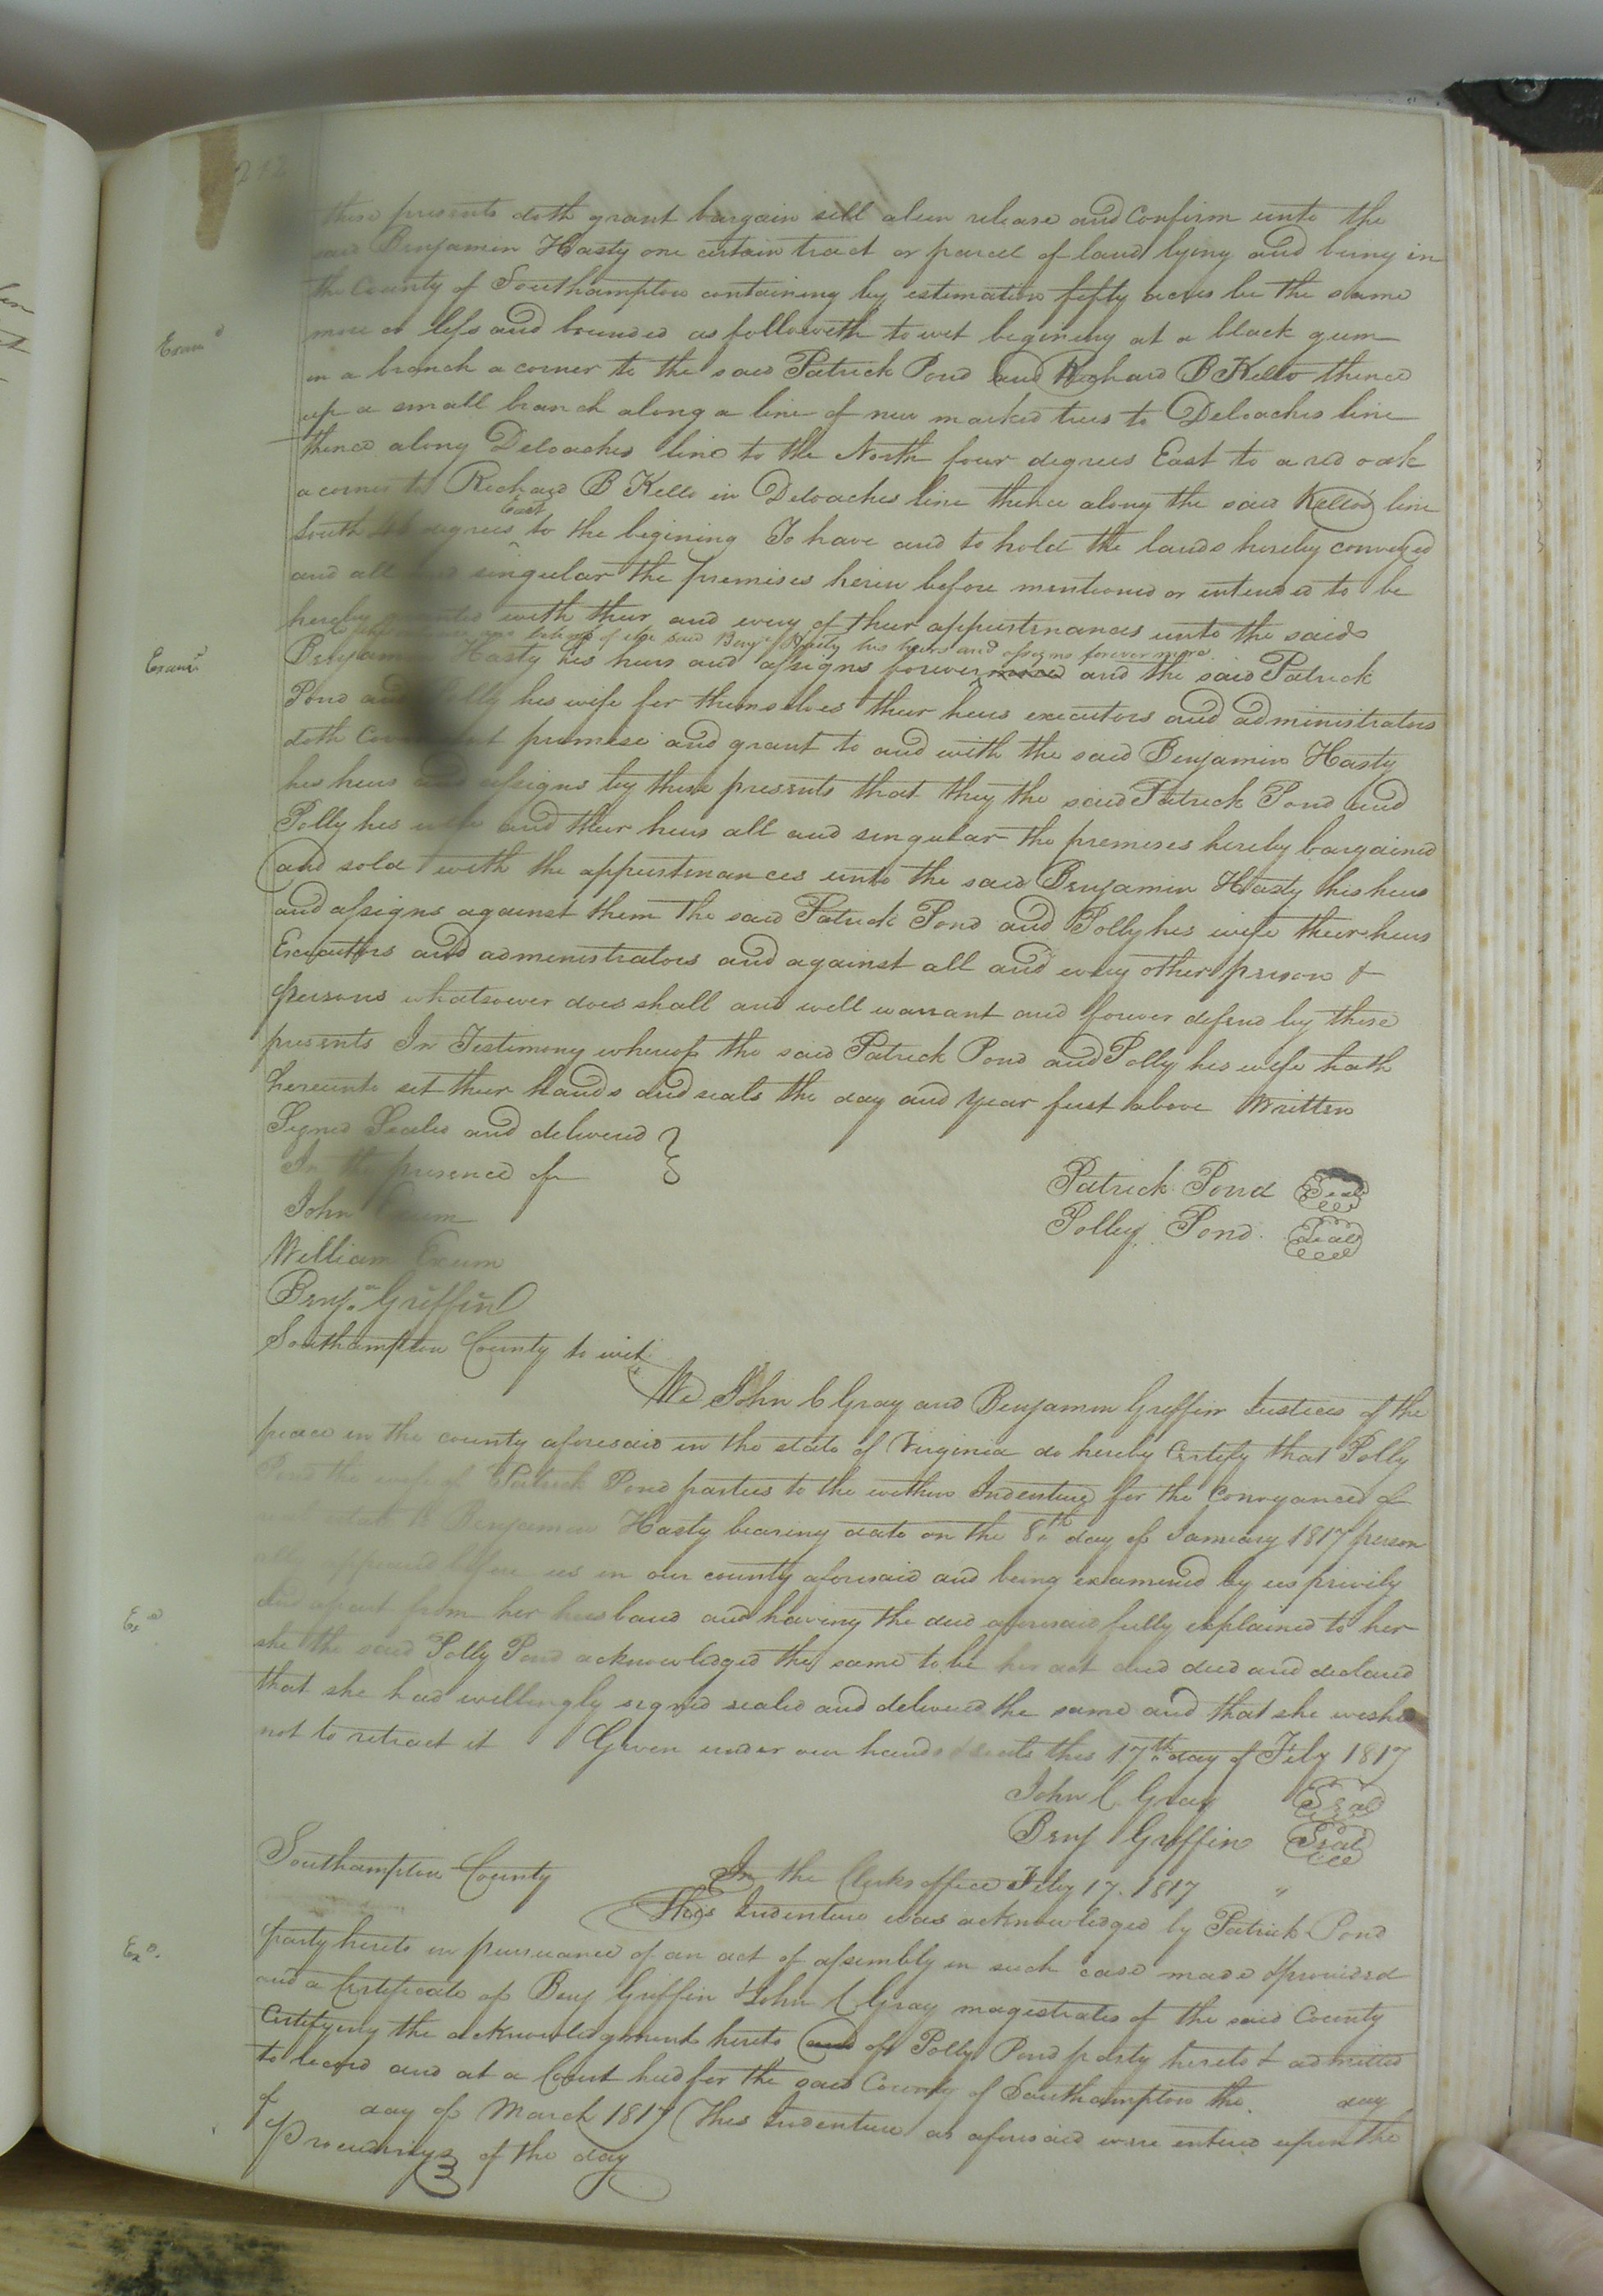 these presents doth grant bargain sell alien release and Confirm unto the
said Benjamin Hasty one certain tract or parcel of land lying and being in
the County of Southampton containing by estimation fifty acres be the same
more or less and bounded as followeth to wit begining at a black gum
in a branch a corner to the said Patrick Pond and Richard B Kello thence
up a small branch along a line of new marked trees to Deloaches line
thence along Deloaches line to the North four degrees East to a red oak
a corner to Richard B Kello in Deloaches line thence along the said Kellos line
East
South degrees to the begining To have and to hold the lands hereby conveyed
and all and singular the premises herein before mentioned or intended to be
hereby granted with their and every of their appurtenances unto the said
of the said Benja Hasty his heirs and assigns forever more
Benjamin Hasty his heirs and assigns forever more and the said Patrick
Pond and Polly his wife for themselves their heirs executors and administrators
doth Covenant promise and grant to and with the said Benjamin Hasty
his heirs and assigns by these presents that they the said Patrick Pond and
Polly his wife and their heirs all and singular the premises hereby bargained
and sold with the appurtenances unto the said Benjamin Hasty his heirs
and assigns against them the said Patrick Pond and Polly his wife their heirs
Executors and administrators and against all and every other person &
persons whatsoever does shall and will warrant and forever defend by these
presents In Testimony whereof the said Patrick Pond and Polly his wife hath
hereunto set their hands and seals the day and year first above Written
Signed Sealed and delivered
In the presence of
John Exum
William Exum
Benjn Griffin
Patrick Pond Seal
Polley Pond Seal
Southampton County to wit
We John C Gray and Benjamin Griffin Justices of the
peace in the county aforesaid in the state of Virginia do hereby Certify that Polly
Pond the wife of Patrick Pond parties to the within Indenture for the Conveyance of
real estate to Benjamin Hasty bearing date on the 8th day of January 1817 person
ally appeared before us in our county aforesaid and being examined by us privily
and apart from her husband and having the deed aforesaid fully explained to her
she the said Polly Pond acknowledged the same to be her act and deed and declared
that she had willingly signed sealed and delivered the same and that she wished
not to retract it Given under our hands & seals this 17th day of Feby 1817
John C. Gray Seal
Benj Griffin Seal
Southampton County In the Clerks office Feby 17. 1817
This Indenture was acknowledged by Patrick Pond
party hereto in pursuance of an act of assembly in such case made & provided
and a Certificate of Benj Griffin & John C Gray magistrates of the said County
Certifying the acknowledgment hereto and of Polly Pond party hereto & admitted
to record and at a Court held for the said County of Southampton the day
of day of March 1817 This Indenture as aforesaid were entered upon the
Proceedings of the day
Examd
Examd
Exd
Exd.